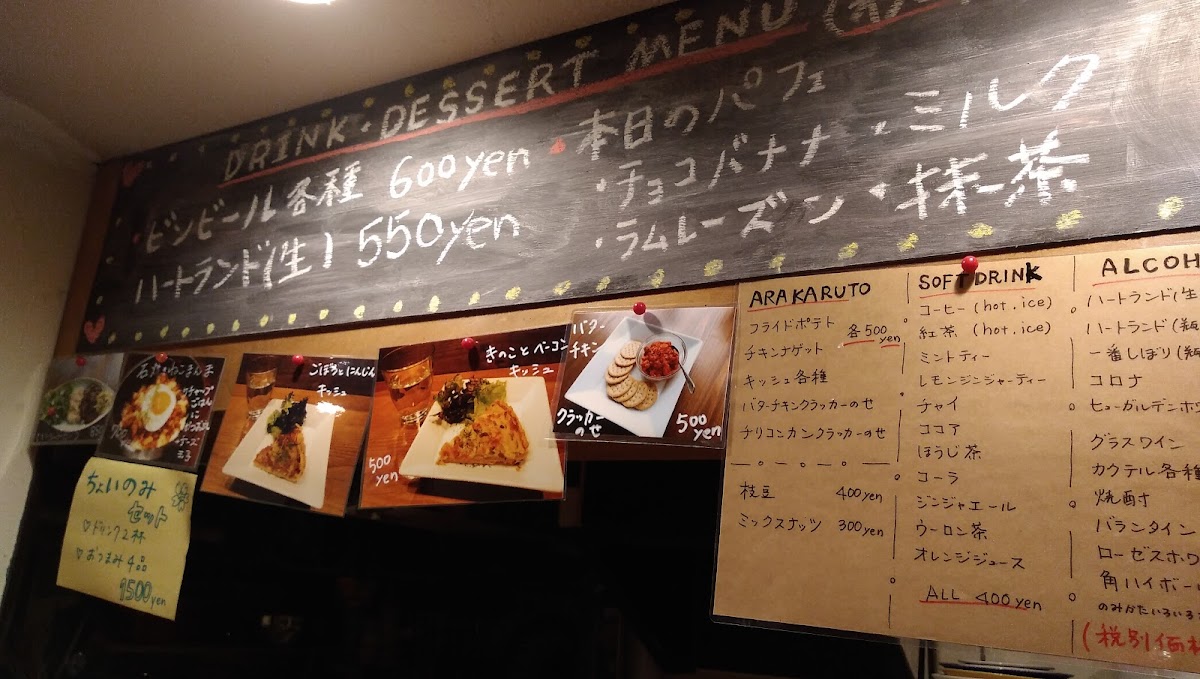 DRINK・DESSERT MENU
・ビンビール各種 600yen
ハートランド(生) 550yen
・本日のパフェ
・チョコバナナ ・ミルク
・ラムレーズン ・抹茶
石焼ねこまんま
ケチャップ
ごはん
に
チーズ
玉子
ごぼうとにんじん
キッシュ
きのことベーコン
キッシュ
500
yen
バター
チキン
クラッカー
のせ
500
yen
ちょいのみ
セット
♡ドリンク2杯
♡おつまみ4品
1500yen
ARAKARUTO
フライドポテト
各500
yen
チキンナゲット
キッシュ各種
バターチキンクラッカーのせ
チリコンカンクラッカーのせ
枝豆 400yen
ミックスナッツ 300yen
SOFT DRINK
コーヒー (hot.ice)
紅茶 (hot.ice)
ミントティー
レモンジンジャーティー
チャイ
ココア
ほうじ茶
コーラ
ジンジャエール
ウーロン茶
オレンジジュース
ALL 400yen
ALCOH
ハートランド(生
ハートランド(瓶
一番しぼり(瓶
コロナ
ヒューガルデンホ
グラスワイン
カクテル各種
焼酎
バランタイン
ローゼスホワ
角ハイボー
のみかたいろいろ
(税別価格